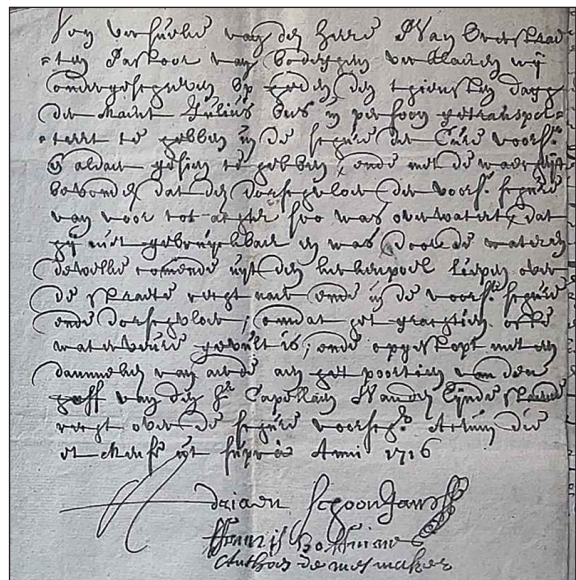 Ten versuecke van den heere Van Overstrae
=ten Pastoor van bodeghem verklaeren wij
ondergeschreven op heden den thiensten dagh
der maent Julius ons in persoon getranspor=
=teert te hebben in de schure der Cure voors.
& aldaer gesien te hebben, ende met de waerheijt
bevonden dat den dorschvloer der voors. schure
van voor tot achter soo was overwatert, dat
hij niet gebruijckbaer en was door de wateren
dewelke comende uijt den kerckenpoel liepen over
de straete recht naer ende in de voors. schure
ende dorschvloer; omdat het grachtien ofte
waterveure gevult is; ende opgestopt met een
dammeken van aerde aen het poortien van den
hoff van den hr. Capellaen Vanden Eijnde staende
recht over de schure voorsch. Actum die
et mense ut supra Anni 1716
Adriaen Schoonjans
Hendrik
Anthoen de mesmaker